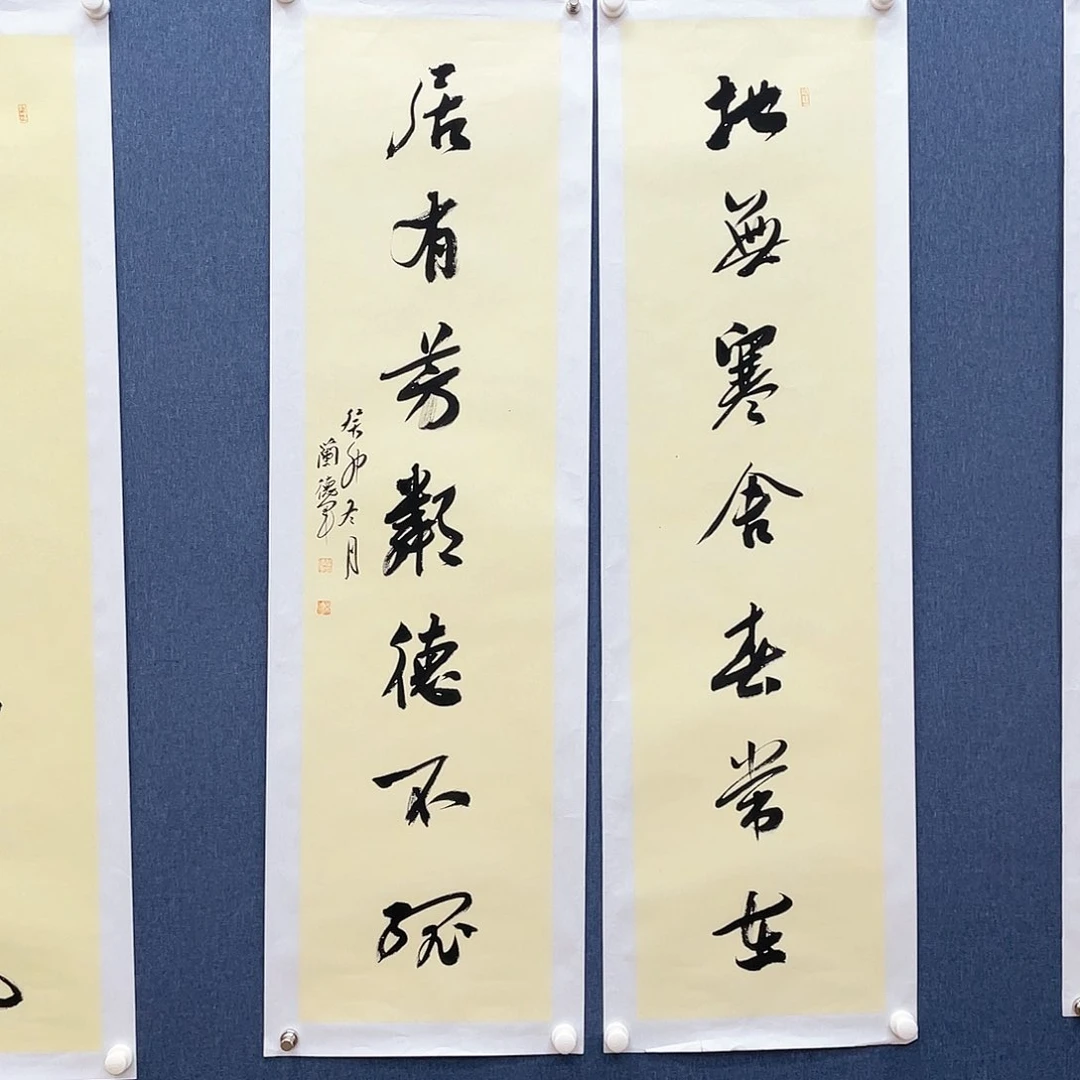 地無寒舍春常在
居有芳鄰德不孤
癸卯冬月
蘭德軍